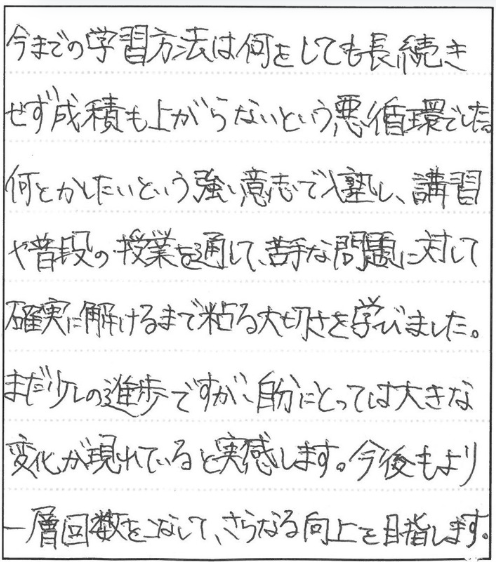 今までの学習方法は何をしても長続き
せず成積も上がらないという悪循環でした。
何とかしたいという強い意志で入塾し、講習
や普段の授業を通して、苦手な問題に対して
確実に解けるまで粘る大切さを学びました。
まだ少しの進歩ですが、自分にとっては大きな
変化が現れていると実感します。今後もより
一層回数をこなして、さらなる向上を目指します。